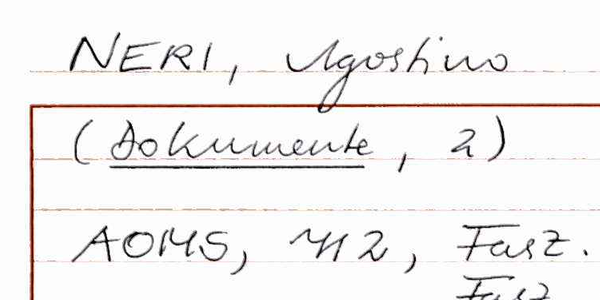 NERI, Agostino
(Dokumente, 2)
AOMS, 412, Fasz.
Fasz